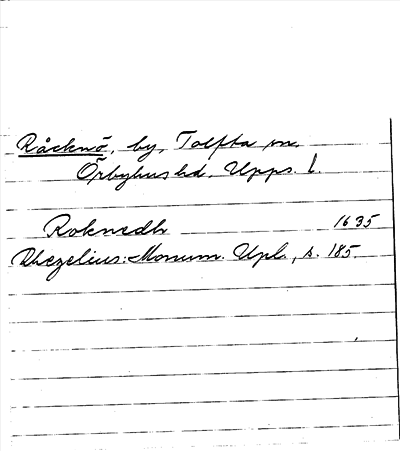 Råcknö, by, Tolfta sn.
Örbyhus hd. Upps. l.
Roknedh 1635
Rhezelius: Monum. Upl., s. 185.